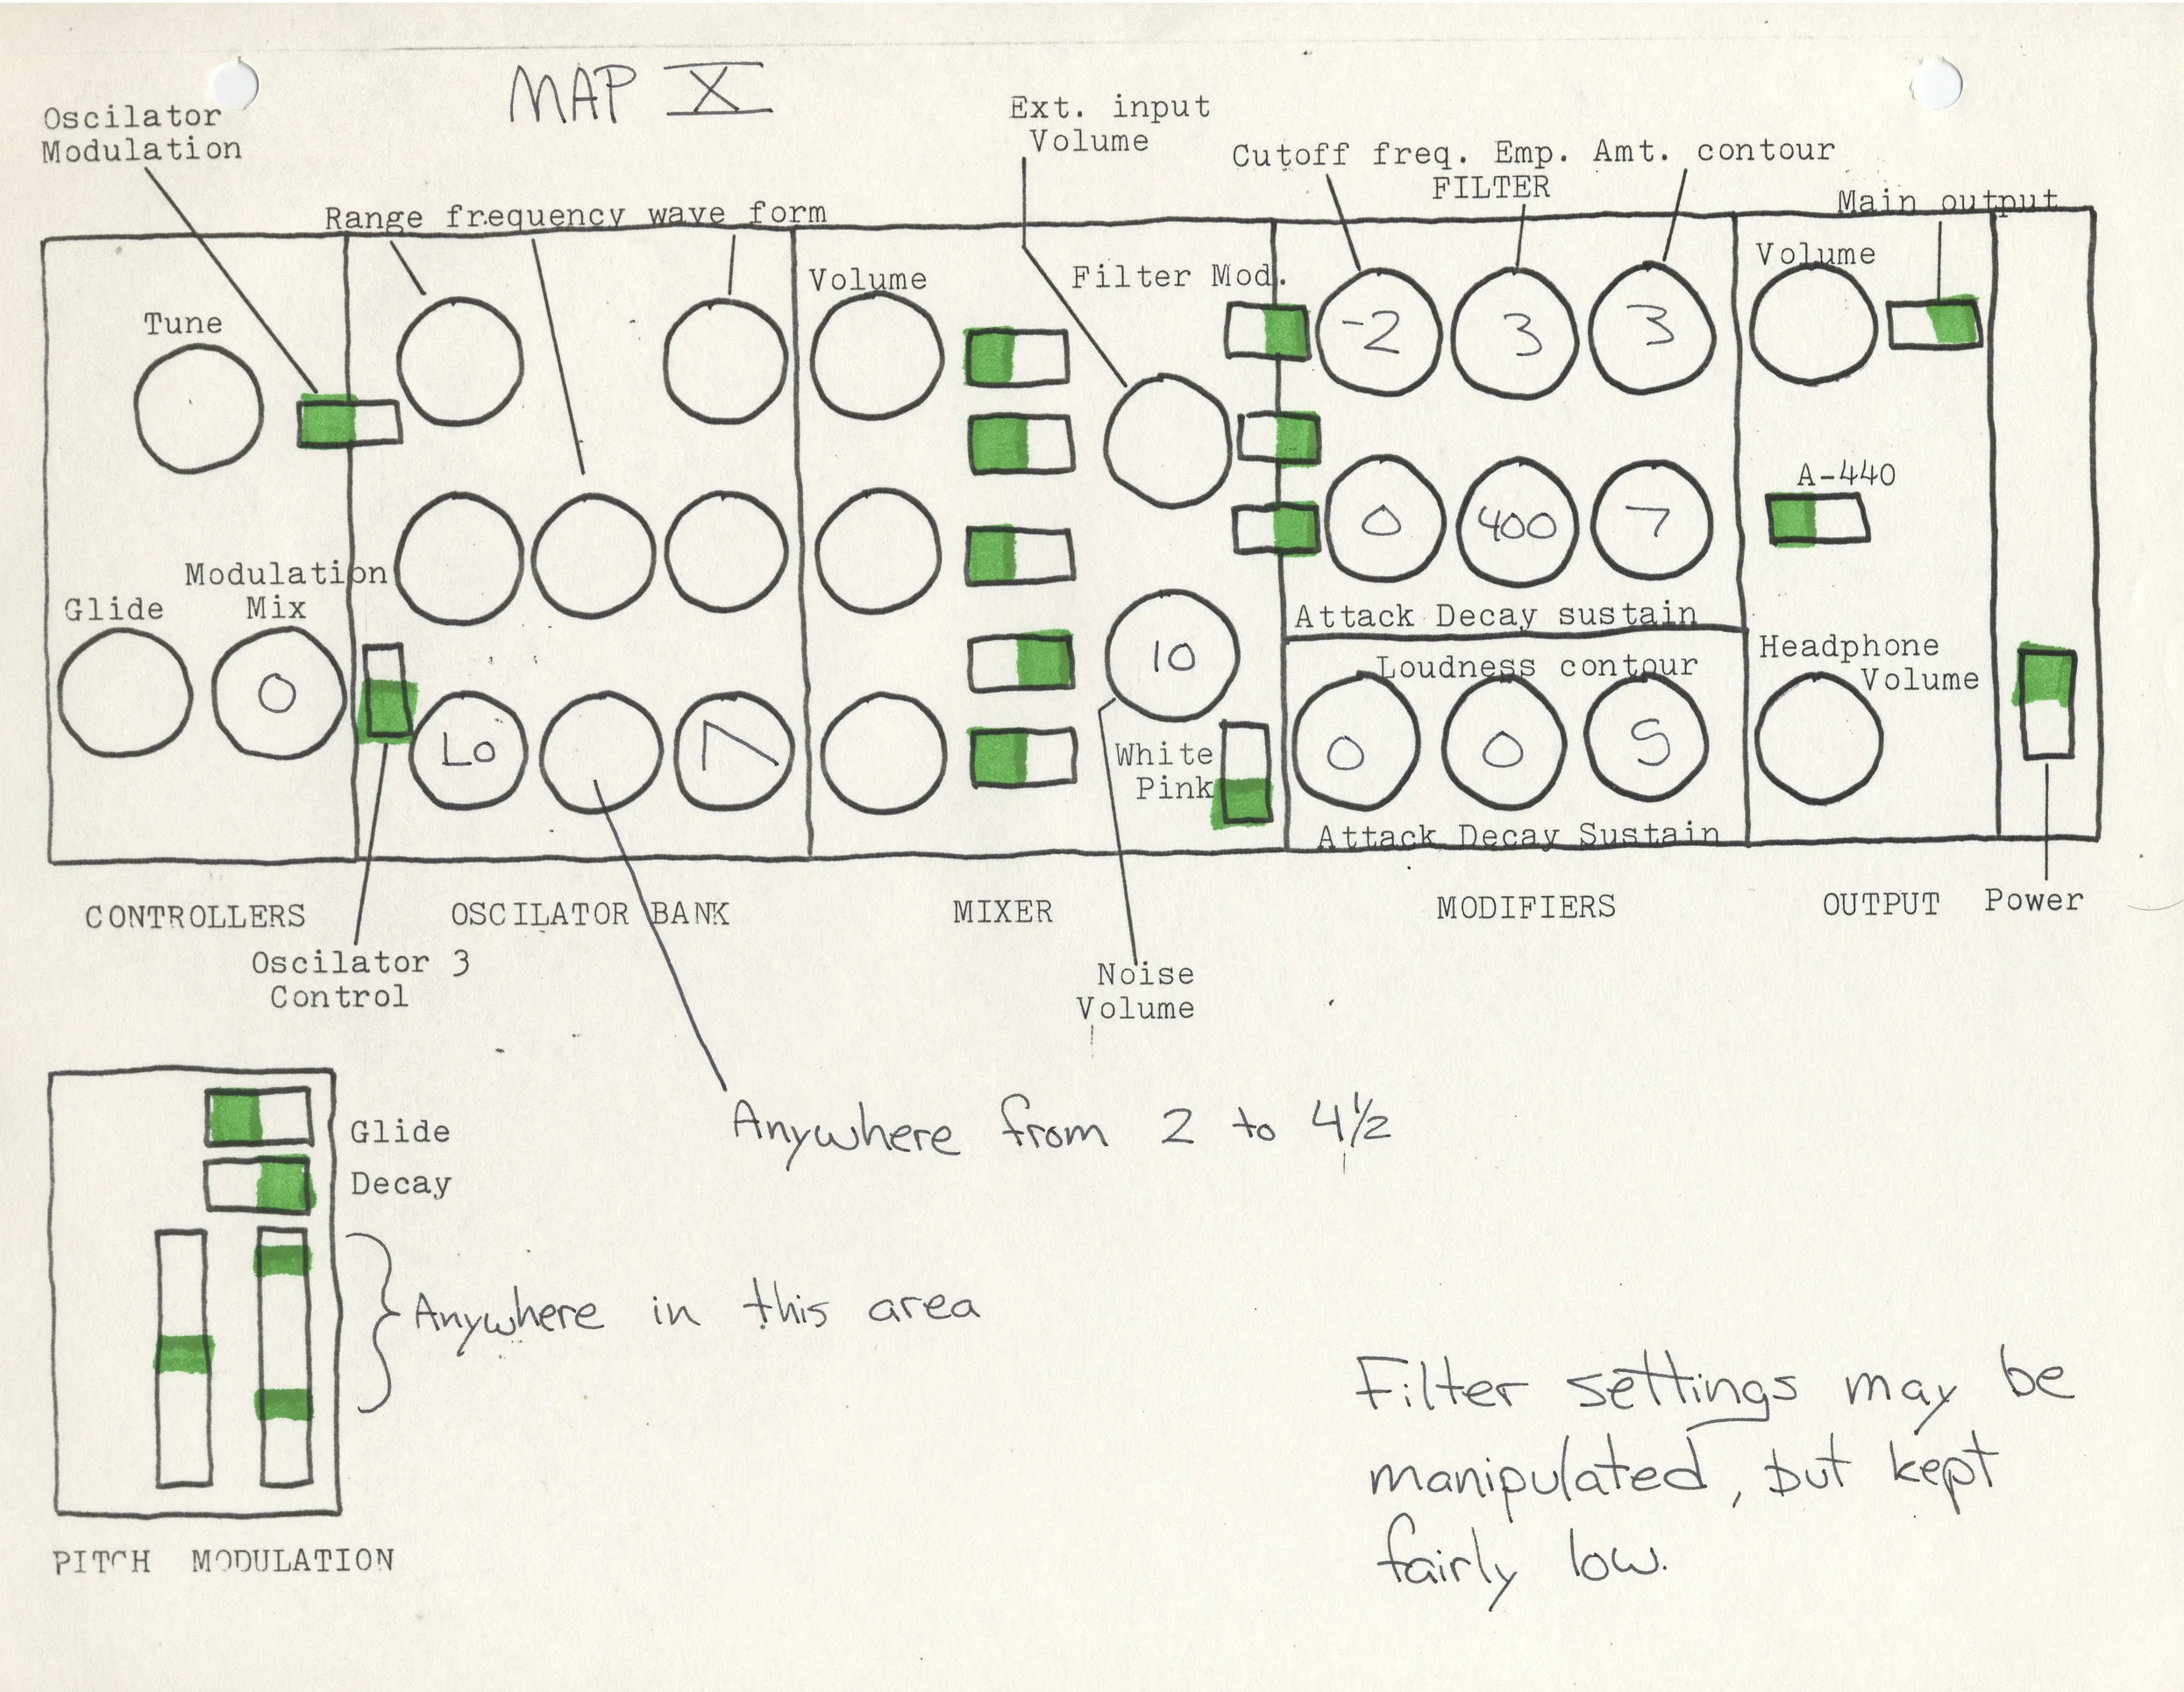 MAP X
Oscilator
Modulation
Ext. input
Volume
Cutoff freq. Emp. Amt. contour
FILTER
Main output
Range frequency wave form
Volume
Filter Mod.
Volume
Tune
-2 3 3
A-440
0 400 7
Modulation
Mix
Glide
Attack Decay sustain
Headphone
Volume
Loudness contour
0
10
Lo
White
Pink
0 0 5
Attack Decay Sustain
CONTROLLERS
OSCILATOR BANK
MIXER
MODIFIERS
OUTPUT
Power
Oscilator 3
Control
Noise
Volume
Anywhere from 2 to 4½
Glide
Decay
Anywhere in this area
Filter settings may be
manipulated, but kept
fairly low.
PITCH MODULATION